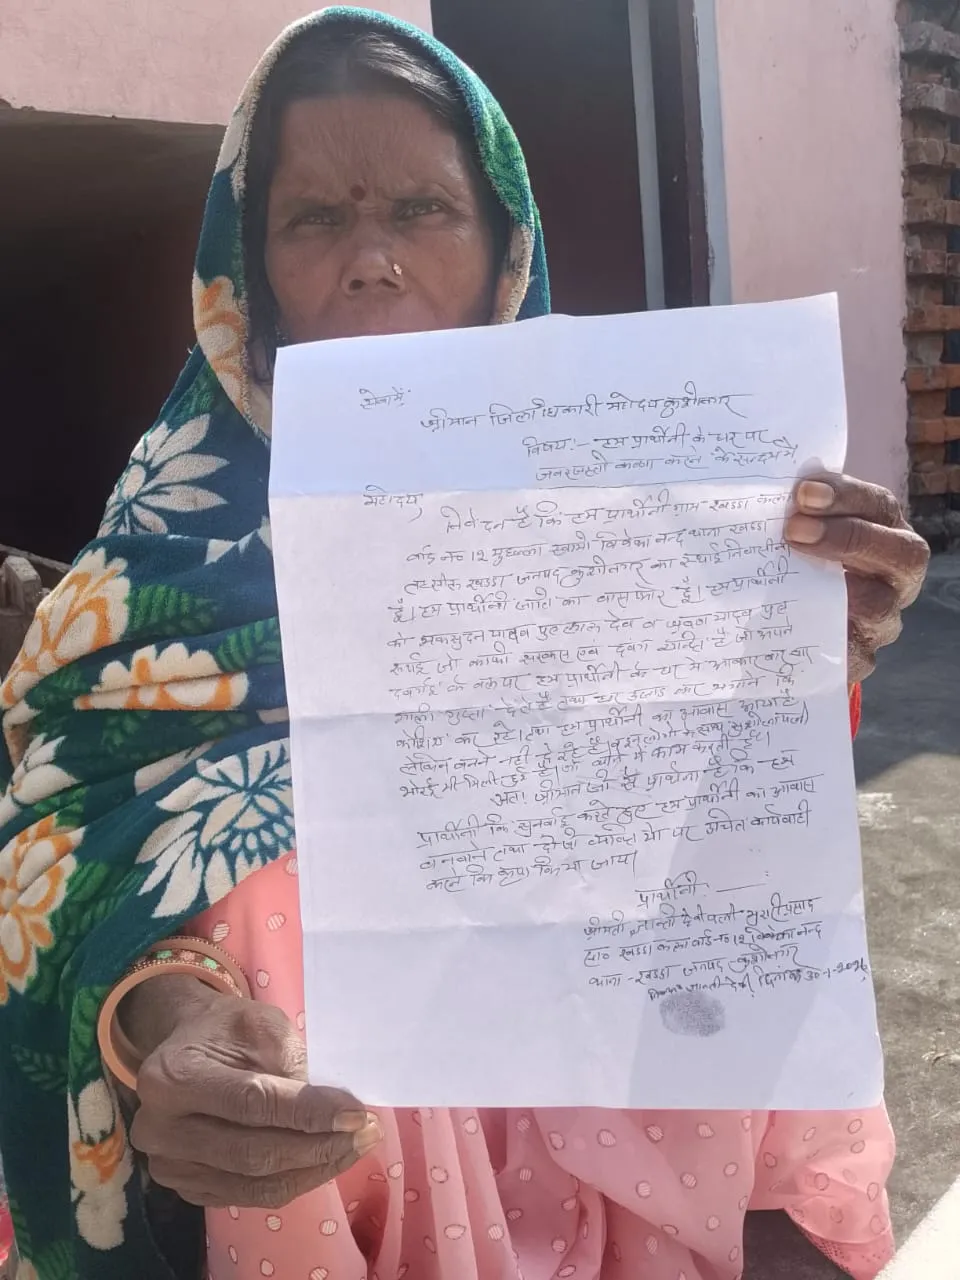 सेवामें,
श्रीमान जिलाधिकारी महोदय कुशीनगर
विषय:- हम प्रार्थीनी के घर पर
जबरजस्ती कब्जा करने के सन्दर्भ में
महोदय,
निवेदन है कि हम प्रार्थीनी ग्राम खड्डा कला
वार्ड न० 12 मुहल्ला स्वामी विवेका नन्द थाना खड्डा
तहसील खड्डा जनपद कुशीनगर का स्थाई निवासीनी
है। हम प्रार्थीनी जाति का बासफोर हूँ। हम प्रार्थीनी
को यादव पुत्र लाल देव व यादव पुत्र
जो काफी सरकस एवं दबंग व्यक्ति है जो अपने
दबंगई के बल पर हम प्रार्थीनी के घर में आकार बार बार
गाली गुप्ता देते है तथा घर उजाड़ कर भगाने कि
कोशिश कर रहे। तथा हम प्रार्थीनी का आवास आया है
लेकिन बनने नही दे रहे है व इनलोगो के साथ सुशीला पत्नी
भी मिली हुई है। जो थाने में काम करती है।
अतः श्रीमान जी से प्रार्थना है कि हम
प्रार्थीनी कि सुनवाई करते हुए हम प्रार्थीनी का आवास
बनवाने तथा दोषी व्यक्तियो पर उचित कार्यवाही
करने कि कृपा किया जाय।
प्रार्थीनी
श्रीमती देवी पत्नी प्रसाद
सा० खड्डा कला वार्ड न० 12 विवेका नन्द
थाना - खड्डा जनपद - कुशीनगर
देवी, दिनांक 30-1-2026